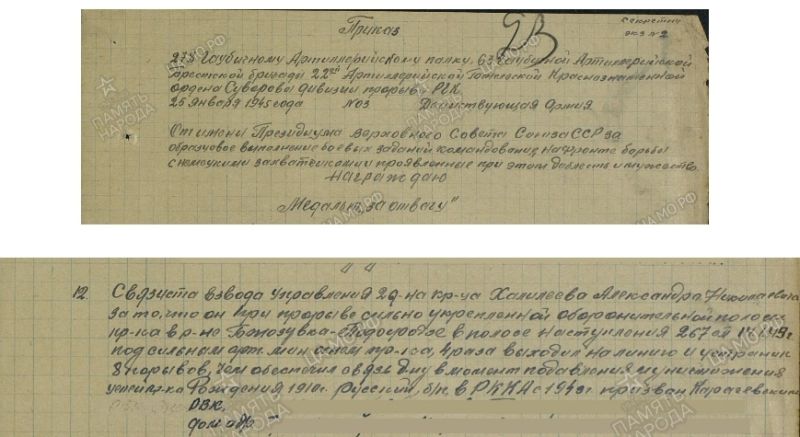 Секретно
экз №2
Приказ
273 Гаубичному Артиллерийскому полку, 67 Гаубичной Артиллерийской
Брестской бригады 22ой Артиллерийской Гомельской Краснознаменной
ордена Суворова дивизии прорыва РГК.
25 января 1945 года №03 Действующая Армия
От имени Президиума Верховного Совета Союза ССР за
образцовое выполнение боевых заданий командования, на фронте борьбы
с немецкими захватчиками и проявленные при этом доблесть и мужество
Награждаю
Медалью "за отвагу"
12. Связиста взвода управления 2 д-на кр-ца Халилеева Александра Николаевича
За то, что он при прорыве сильно укрепленной оборонительной полосы
пр-ка в р-не в полосе наступления
под сильным арт. мин огнем пр-ка, 4 раза выходил на линию и устранил
8 порывов, чем обеспечил связь в момент подавления и уничтожения
Рождения 1910г. русский, б/п. в РККА с 1943г. призван Карачевским
РВК,
дом адр.
ПАМЯТЬ
НАРОДА
ЦАМО.РФ